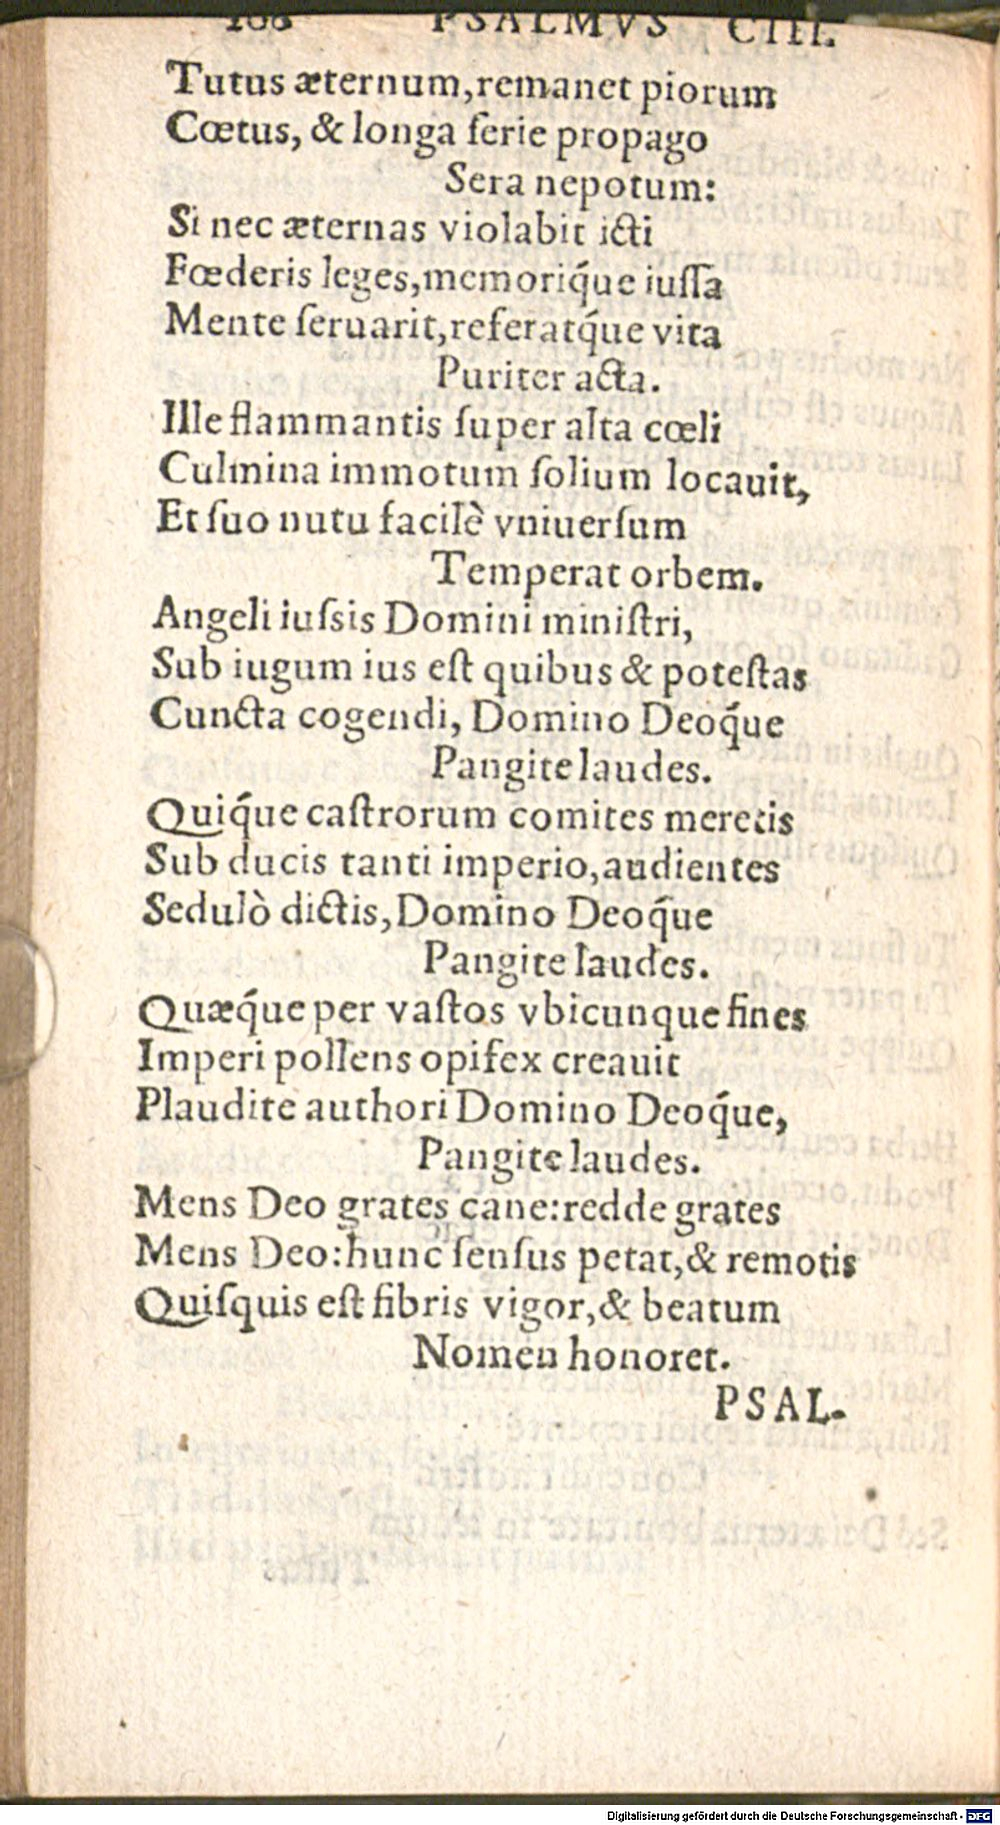 PSALMVS CIII.
Tutus æternum, remanet piorum
Cœtus, & longa ſerie propago
Sera nepotum:
Si nec æternas violabit icti
Fœderis leges, memoriq́ue iuſſa
Mente ſeruarit, referatq́ue vita
Puriter acta.
Ille flammantis ſuper alta cœli
Culmina immotum ſolium locauit,
Et ſuo nutu facilè vniuerſum
Temperat orbem.
Angeli iuſsis Domini miniſtri,
Sub iugum ius eſt quibus & poteſtas
Cuncta cogendi, Domino Deoq́ue
Pangite laudes.
Quiq́ue caſtrorum comites meretis
Sub ducis tanti imperio, audientes
Sedulò dictis, Domino Deoq́ue
Pangite laudes.
Quæq́ue per vaſtos vbicunque fines
Imperi pollens opifex creauit
Plaudite authori Domino Deoq́ue,
Pangite laudes.
Mens Deo grates cane: redde grates
Mens Deo: hunc ſenſus petat, & remotis
Quiſquis eſt fibris vigor, & beatum
Nomen honoret.
PSAL-
Digitalisierung gefördert durch die Deutsche Forschungsgemeinschaft - DFG